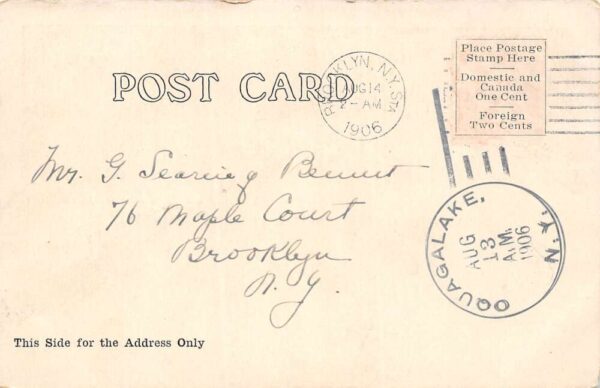 POST CARD
BROOKLYN, N.Y. STA
AUG 14
2-AM
1906
Place Postage
Stamp Here
Domestic and
Canada
One Cent
Foreign
Two Cents
Mr. G.
76 Maple Court
Brooklyn
N.Y.
OQUAGALAKE, N.Y.
AUG
13
A.M.
1906
This Side for the Address Only